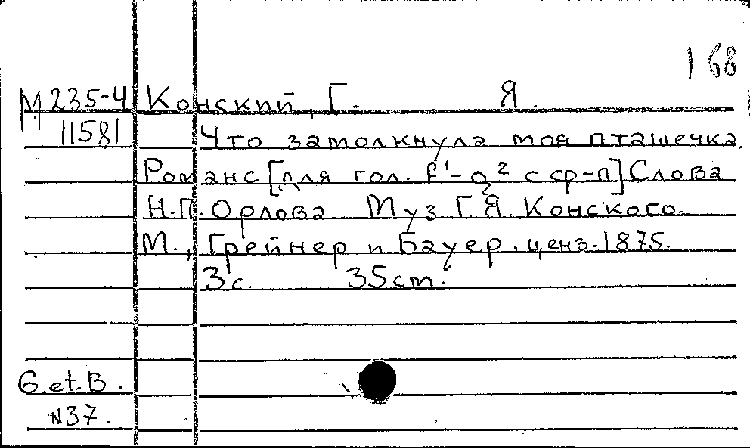 168
М 235-4 Конский, Г. Я.
11581 Что замолкнула моя пташечка
Романс [для гол. f¹-g² с ср-п] Слова
Н.П. Орлова Муз Г.Я. Конского
М., Грейнер и Бауер. ценз. 1875.
3 с. 35 cm.
G. et. B.
N37.